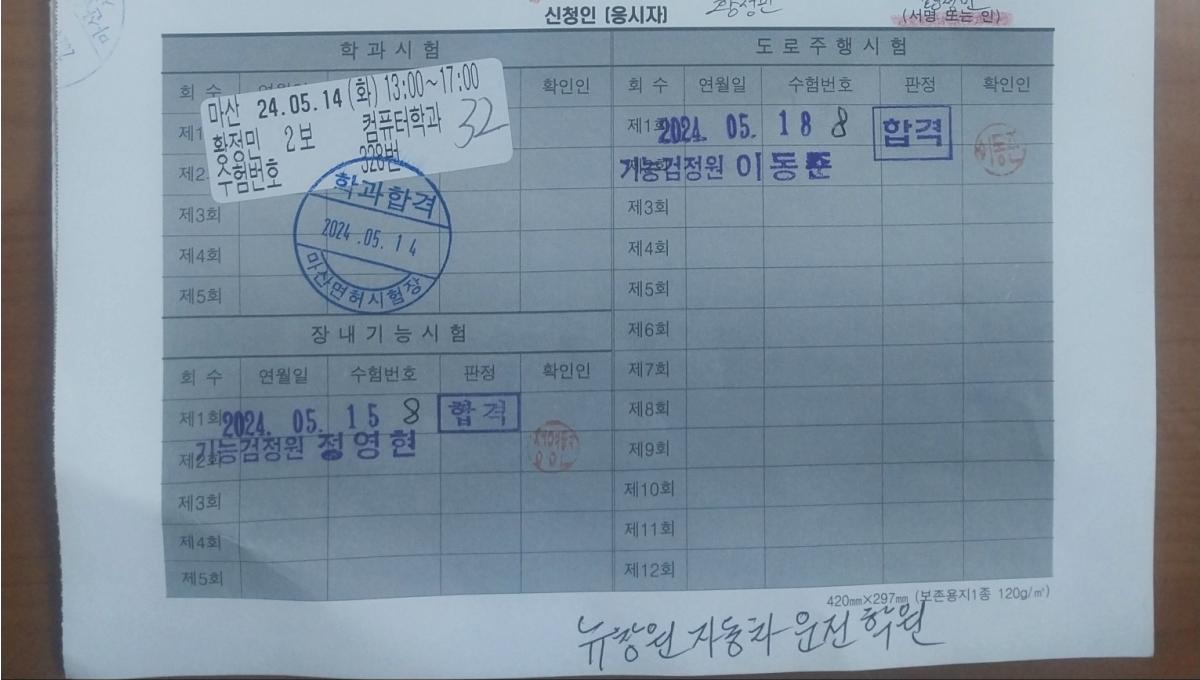 신청인 [응시자]
(서명 또는 인)
학과시험
회 수 확인인
마산 24.05.14 (화) 13:00~17:00
2보 컴퓨터학과 32
수험번호 328번
제3회
제4회
제5회
학과합격
2024.05.14
마산면허시험장
장내기능시험
회 수 연월일 수험번호 판정 확인인
제1회 2024.05.15 8 합격
제2회 기능검정원 정영현
제3회
제4회
제5회
도로주행시험
회 수 연월일 수험번호 판정 확인인
제1회 2024.05.18 8 합격
기능검정원 이동준
제3회
제4회
제5회
제6회
제7회
제8회
제9회
제10회
제11회
제12회
420mm×297mm (보존용지1종 120g/㎡)
뉴창원 자동차 운전 학원